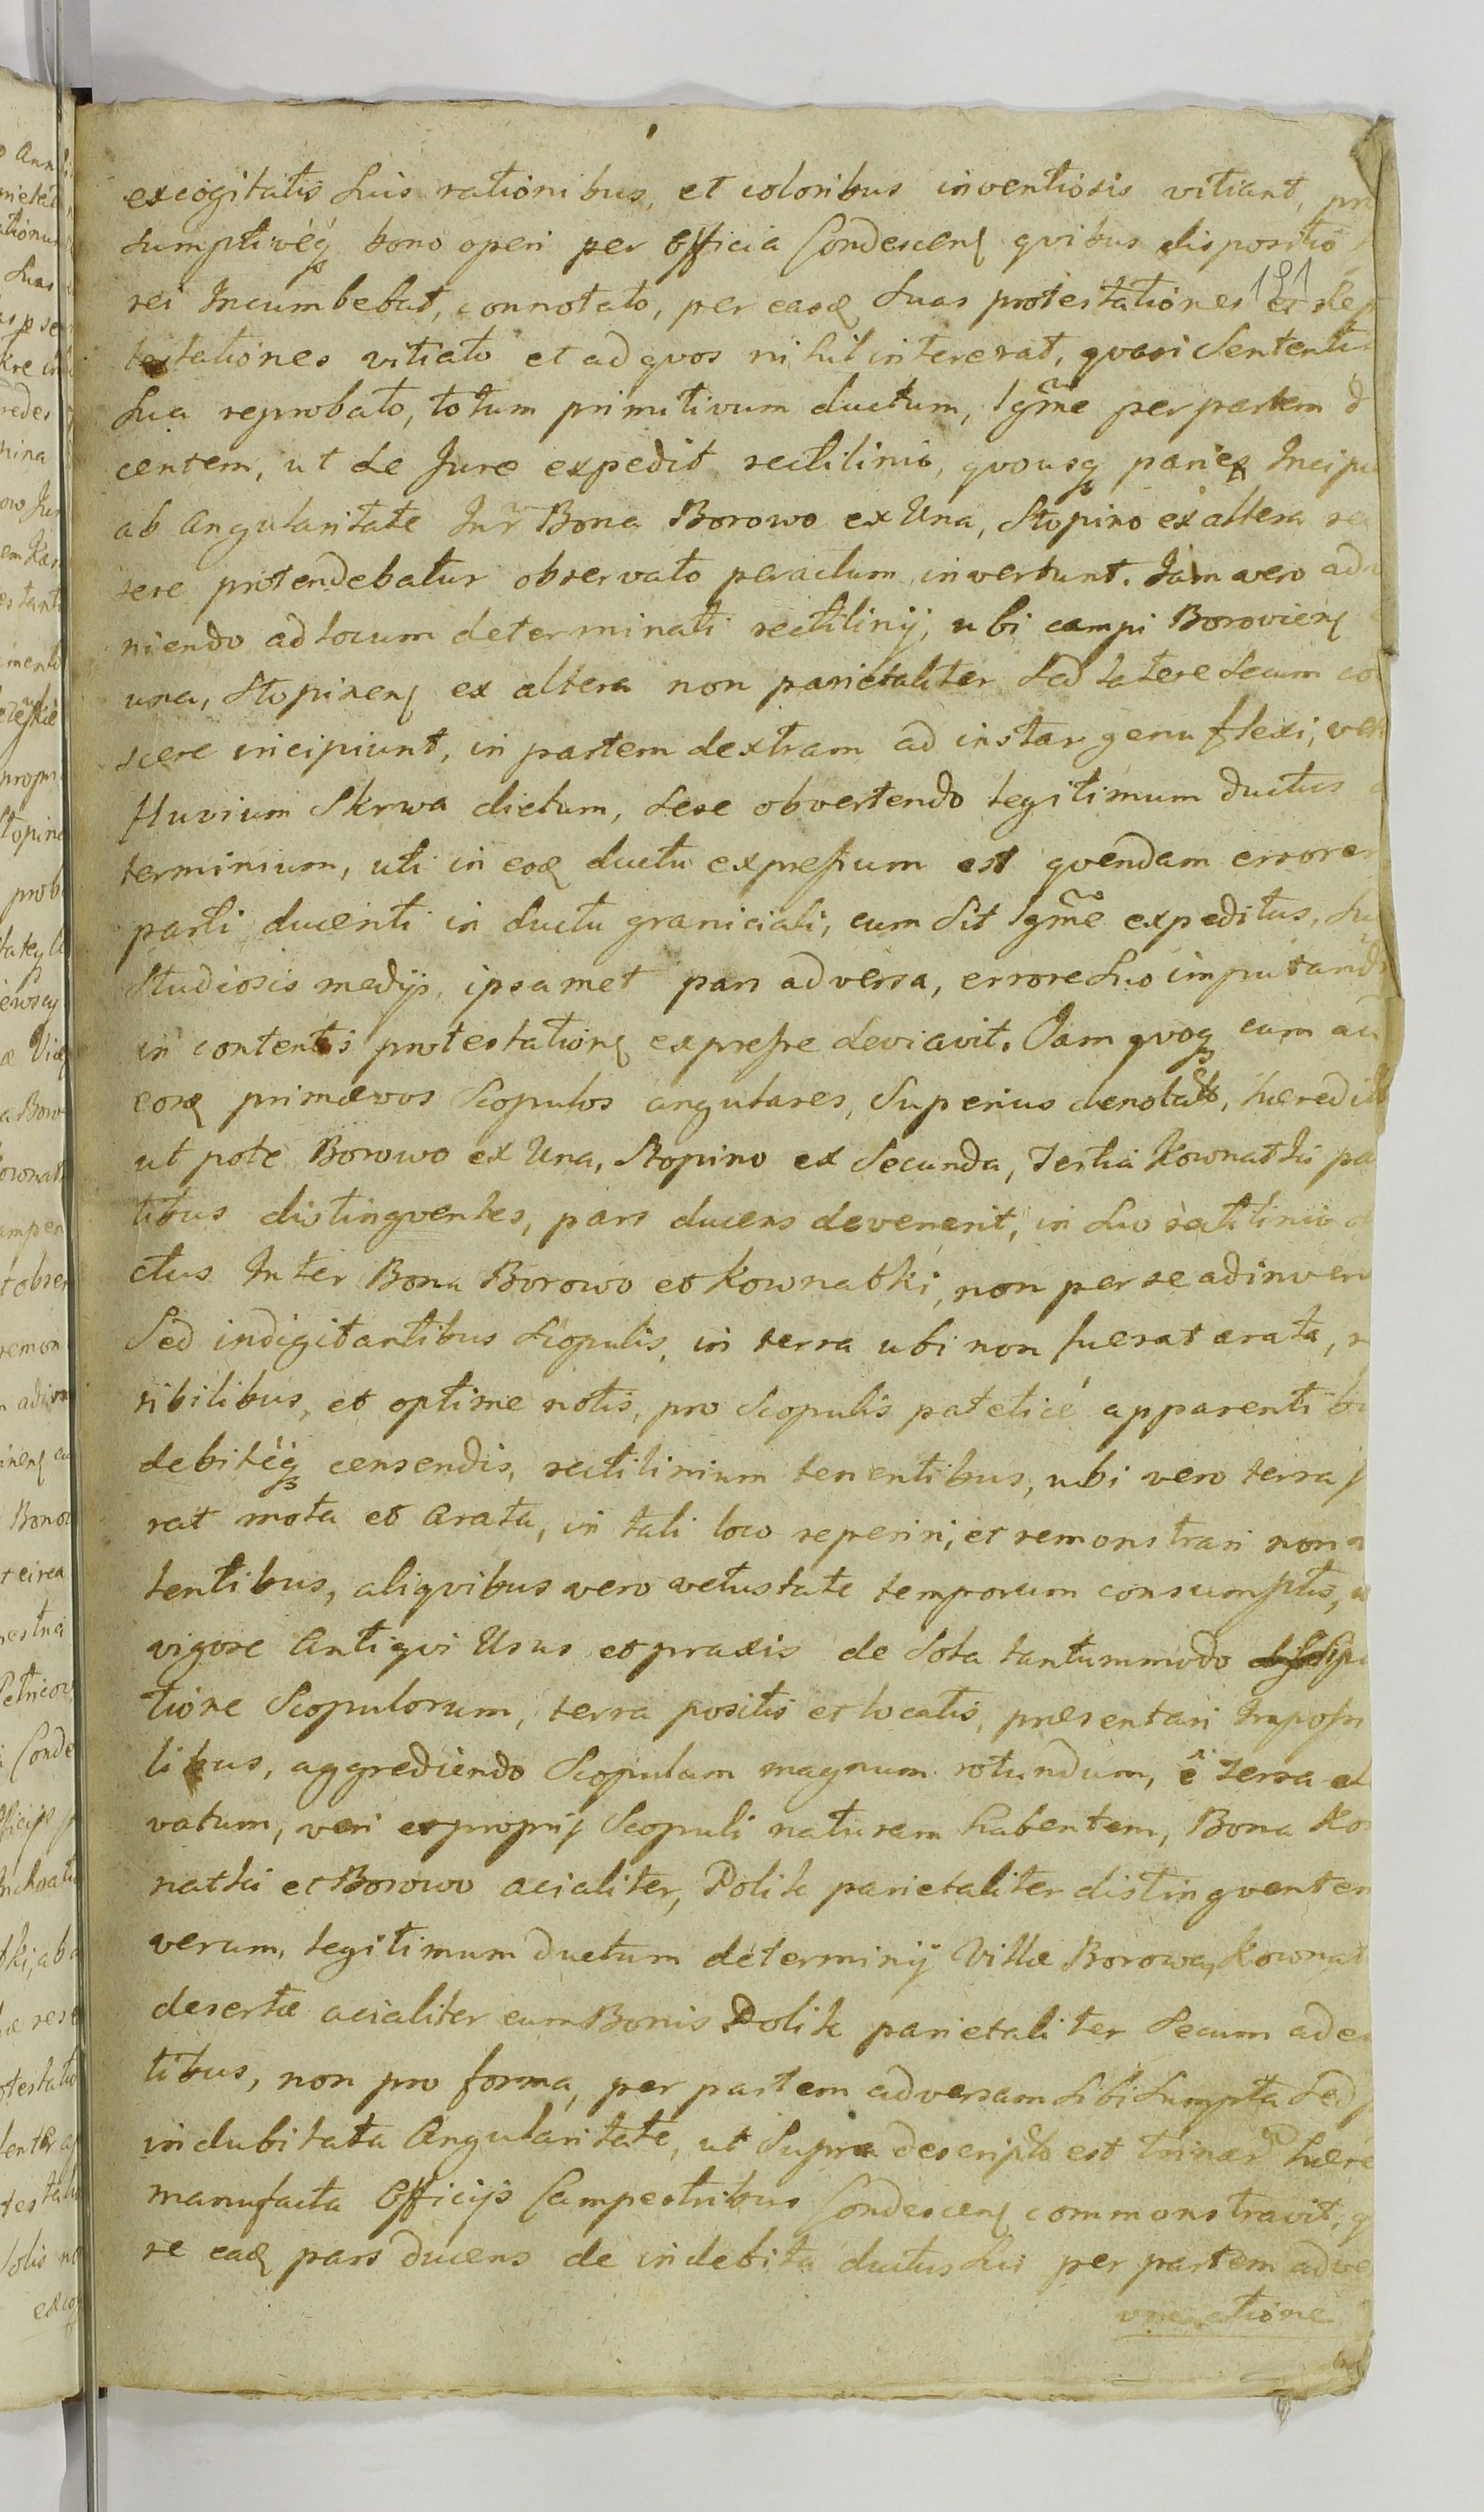 excogitatis Suis rationibus, et coloribus inventiosis vitiant, præ
sumptivéq3 bono operi per Officia Condescenς qvibus dispositio
rei Incumbebat, connotato, per easđ Suas protestationes et Rep
191
testationes vitiato et ad qvos nihil intererat, qvasi Sententia
Sua reprobato, totum primitivum ductum, lg̃me per partem d
centem, ut de Jure expedit rectilinio, qvousq3 paries Incipi
ab Angularitate Inr̃ Bona Borowo ex Una, Stopino ex altera
sere protendebatur observato peractum, invertunt. Jam vero adv
niendo ad locum determinati rectilinij, ubi campi Borovienς
una, Stopinenς ex altera non parietaliter Sed latere Secum co
scere incipiunt, in partem dextram ad instar genu flexi, ver
fluvium Skrwa dictum, Sese obvertendo legitimum ductus
terminium, uti in eođ ductu expressum est qvendam errorem
parti ducenti in ductu graniciali, cum Sit lg̃me expeditus, Su
Studiosis medijs, ipsamet pars adversa, errore Suo imputando
in contentis protestationς expresse deviavit. Jam qvoq3 cum ad
eosđ primævos Scopulos angulares, Superius denotatos, hæredit
ut pote Borowo ex Una, Stopino ex Secunda, Tertia Kownatki pa
tibus distingventes, pars ducens devenerit, in Suo rectilinio d
ctus Inter Bona Borowo et Kownatki, non per se adinven
Sed indigitantibus Scopulis, in terra ubi non fuerat arata,
sibilibus, et optime notis, pro Scopulis pateticé apparentibu
debitéq3 censendis, rectilinium tenentibus, ubi vero terra f
rat mota et Arata, in tali loco reperiri, et remonstrari non
tentibus, aliqvibus vero vetustate temporum consumptis,
vigore Antiqvi Usus et praxis de Sola tantummodo dissipa
tione Scopulorum, terra positis et locatis, præsentari Impossi
libus, aggrediendo Scopulum magnum rotundum, ê terra el
vatum, veri et proprij Scopuli naturam habentem, Bona Kow
natki et Borowo acialiter, Dolik parietaliter distingventem
verum, legitimum ductum determinij Villæ Borowa, Kownat
desertæ acialiter cum Bonis Dolik parietaliter Secum ade
tibus, non pro forma, per partem adversam Sibi Sumpta Sed
indubitata Angularitate, ut Supra descripto est trinar̃ hære
manufacta Officijs Campestribus Condescenς commonstravit, q
re eađ pars ducens de indebita ductus Sui per partem adve